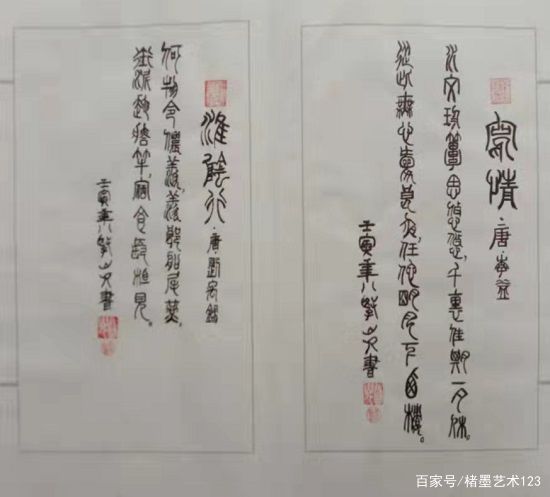 寫情·唐·李益
水文珍簟思悠悠，千裏佳期一夕休。
從此無心愛良夜，任他明月下西樓。
壬寅年八紫山 書
淮陰行·唐·劉禹錫
何物令儂羨，羨郎船尾燕。
銜泥趁檣竿，宿食長相見。
壬寅年八紫山 書
百家号/楮墨艺术123